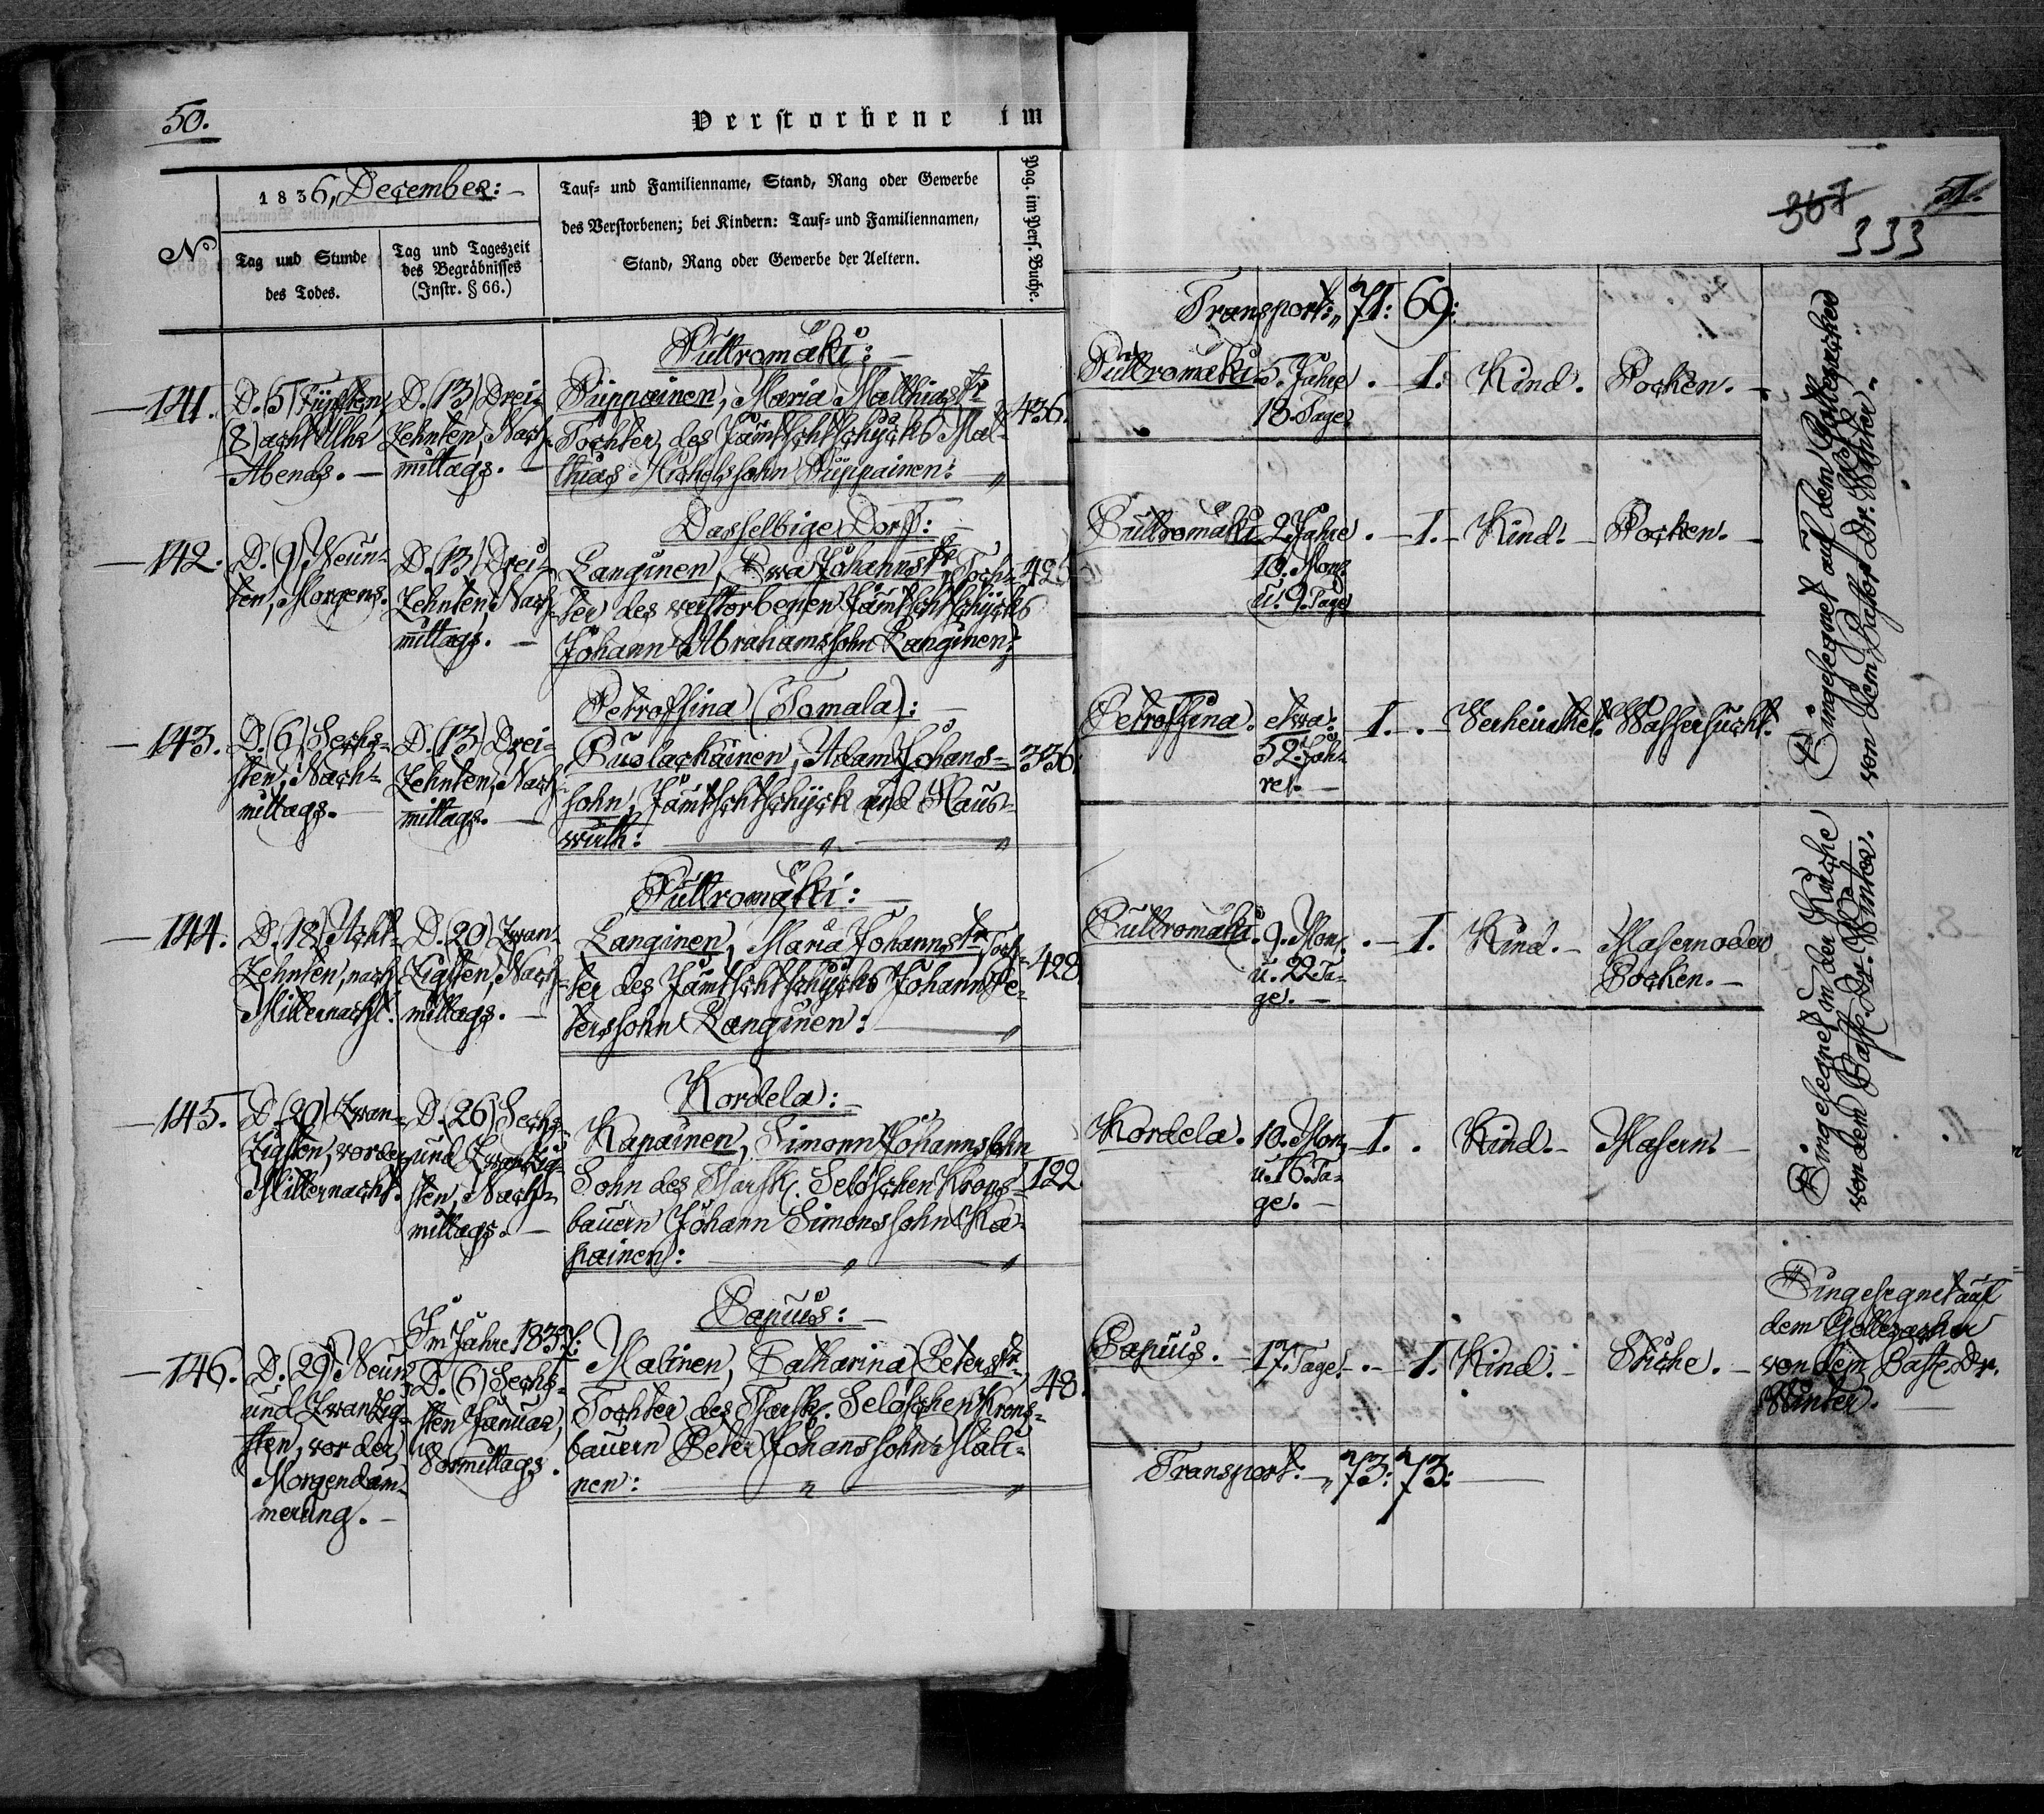 50.
Verstorbene im
1836, December: –
Tauf- und Familienname, Stand, Rang oder Gewerbe
des Verstorbenen; bei Kindern: Tauf- und Familiennamen,
Stand, Rang oder Gewerbe der Aeltern.
Pag. im Pers. Buche.
No
Tag und Stunde
des Todes.
Tag und Tageszeit
des Begräbnisses
(Instr. § 66.)
Püttromäki: –
– 141.
D. (5) Fünften,
(8) acht Uhr
Abends. –
D. (13) Drei-
zehnten, Nach-
mittags. –
Püppainen, Maria Matthiastr.
Tochter, des Jämtschtschÿcks Mat-
thias Michelssohn Püppainen: "
436.
Dasselbige Dorf: –
– 142.
D. (9) Neun-
ten, Morgens.
D. (13) Drei-
zehnten, Nach-
mittags. –
Langinen, Ewa Johannstr., Toch-
ter des verstorbenen Jämtschtschÿcks
Johann Abrahamssohn Langinen:
Petroffsina (Tomala): –
– 143.
D. (6) Sechs-
sten, Nach-
mittags.
D. (13) Drei-
zehnten, Nach-
mittags. –
Puolackainen, Adam Johans-
sohn, Jämtschtschÿck und Haus-
wirth: " "
336.
Püttromäki: –
– 144.
D. (18) Acht-
zehnten, nach
Mitternacht.
D. (20) Zwan-
zigsten, Nach-
mittags. –
Langinen, Maria Johannstr. Toch-
ter des Jämtschtschÿcks Johann Pe-
terssohn Langinen: "
428.
Kordela: –
– 145.
D. (20) Zwan-
zigsten, vorder
Mitternacht.
D. (26) Sechs-
und Zwanzig-
sten, Nach-
mittags. –
Kapainen, Simonn Johannssohn
Sohn des Zarsk. Seloschen Krons-
bauern Johann Simonssohn Ka-
painen: " "
122.
Papius: –
– 146.
D. (29) Neun
und Zwanzig-
sten, vor der
Morgendäm-
merung. –
Im Jahre 1837:
D. (6) Sechs-
sten Januar,
Vormittags.
Malinen, Catharina Peterstr.,
Tochter des Zarsk. Seloschen Krons-
bauern Peter Johanssohn Mali-
nen: " "
48.
367
51.
333
Transport: " 71: 69:
Püttromäki. 5. Jahre 18. Tage. . – 1. Kind. Pocken. –
Püttromäki. 2. Jahre 10. Mon. u. 9. Tage . – 1. – Kind. – Pocken. –
Petroffsina. etwa 52. Jah-
re. – 1. . – Verheirathet. Wassersucht.
Eingesegnet auf dem Gottesacker
von dem Pastor Dr. Winter. –
Püttromäki. 9. Mon. u. 22 Ta-
ge. – . – 1. Kind. – Masern oder
Pocken. –
Kordela. 10. Mon. u. 16. Ta-
ge. – 1. . Kind. – Masern. –
Eingesegnet in der Kirche
von dem Past. Dr. Winter.
Papius. – 17. Tage. . – 1. Kind. – Stiche. –
Eingesegnet auf
dem Gottesacker
von dem Past. Dr.
Winter. –
Transport: – " 73: 73: –